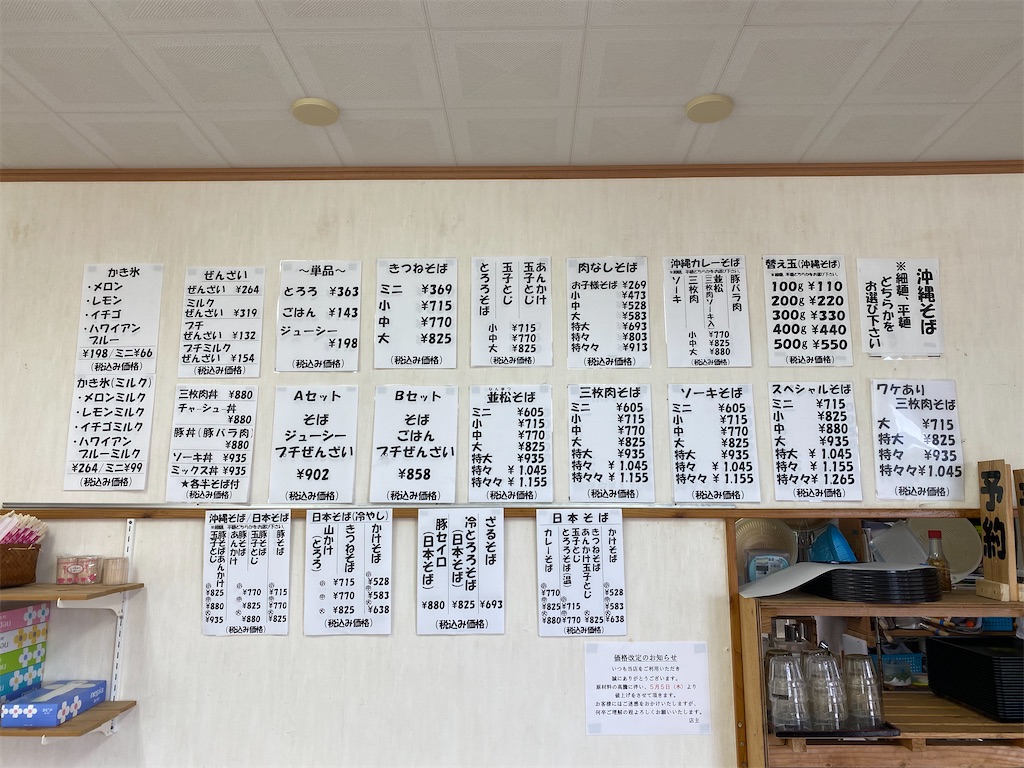 かき氷
・メロン
・レモン
・イチゴ
・ハワイアン
ブルー
¥198/ミニ¥66
(税込み価格)
ぜんざい
ぜんざい ¥264
ミルク
ぜんざい ¥319
プチ
ぜんざい ¥132
プチミルク
ぜんざい ¥154
(税込み価格)
～単品～
とろろ ¥363
ごはん ¥143
ジューシー
¥198
(税込み価格)
きつねそば
ミニ ¥369
小 ¥715
中 ¥770
大 ¥825
(税込み価格)
あんかけ
玉子とじ
玉子とじ
とろろそば
小 ¥715
中 ¥770
大 ¥825
(税込み価格)
肉なしそば
お子様そば ¥269
小 ¥473
中 ¥528
大 ¥583
特大 ¥693
特大々 ¥803
特々々 ¥913
(税込み価格)
沖縄カレーそば
豚バラ肉
並松
(三枚肉ソーキ入)
三枚肉
ソーキ
小 ¥770
中 ¥825
大 ¥880
(税込み価格)
替え玉(沖縄そば)
100g ¥110
200g ¥220
300g ¥330
400g ¥440
500g ¥550
(税込み価格)
沖縄そば
※細麺、平麺
どちらかを
お選び下さい
かき氷(ミルク)
・メロンミルク
・レモンミルク
・イチゴミルク
・ハワイアン
ブルーミルク
¥264/ミニ¥99
(税込み価格)
三枚肉丼 ¥880
チャーシュー丼
¥880
豚丼(豚バラ肉)
¥880
ソーキ丼 ¥935
ミックス丼 ¥935
★各半そば付
(税込み価格)
Aセット
そば
ジューシー
プチぜんざい
¥902
(税込み価格)
Bセット
そば
ごはん
プチぜんざい
¥858
(税込み価格)
並松そば
ミニ ¥605
小 ¥715
中 ¥770
大 ¥825
特大 ¥935
特々 ¥1.045
特々々 ¥1.155
(税込み価格)
三枚肉そば
ミニ ¥605
小 ¥715
中 ¥770
大 ¥825
特大 ¥935
特々 ¥1.045
特々々 ¥1.155
(税込み価格)
ソーキそば
ミニ ¥605
小 ¥715
中 ¥770
大 ¥825
特大 ¥935
特々 ¥1.045
特々々 ¥1.155
(税込み価格)
スペシャルそば
ミニ ¥715
小 ¥825
中 ¥880
大 ¥935
特大 ¥1.045
特々 ¥1.155
特々々 ¥1.265
(税込み価格)
ワケあり
三枚肉そば
大 ¥715
特大 ¥825
特々 ¥935
特々々 ¥1.045
(税込み価格)
沖縄そば/日本そば
豚そば
玉子とじ
豚そば
あんかけ
豚そばあんかけ
玉子とじ
小 ¥715
中 ¥770
大 ¥825
小 ¥770
中 ¥825
大 ¥880
小 ¥825
中 ¥880
大 ¥935
(税込み価格)
日本そば(冷やし)
かけそば
きつねそば
山かけ
(とろろ)
小 ¥528
中 ¥583
大 ¥638
小 ¥715
中 ¥770
大 ¥825
(税込み価格)
ざるそば
冷とろろそば
(日本そば)
豚セイロ
(日本そば)
¥880 ¥825 ¥693
(税込み価格)
日本そば
かけそば
きつねそば
あんかけ玉子とじ
玉子とじ
とろろそば(温)
カレーそば
小 ¥528
中 ¥583
大 ¥638
小 ¥715
中 ¥770
大 ¥825
小 ¥770
中 ¥825
大 ¥880
(税込み価格)
価格改定のお知らせ
いつも当店をご利用いただき
誠にありがとうございます。
原材料の高騰に伴い、5月5日(木)より
値上げをさせて頂きます。
お客様にはご迷惑をおかけいたしますが、
何卒ご理解の程よろしくお願いいたします。
店主
予約